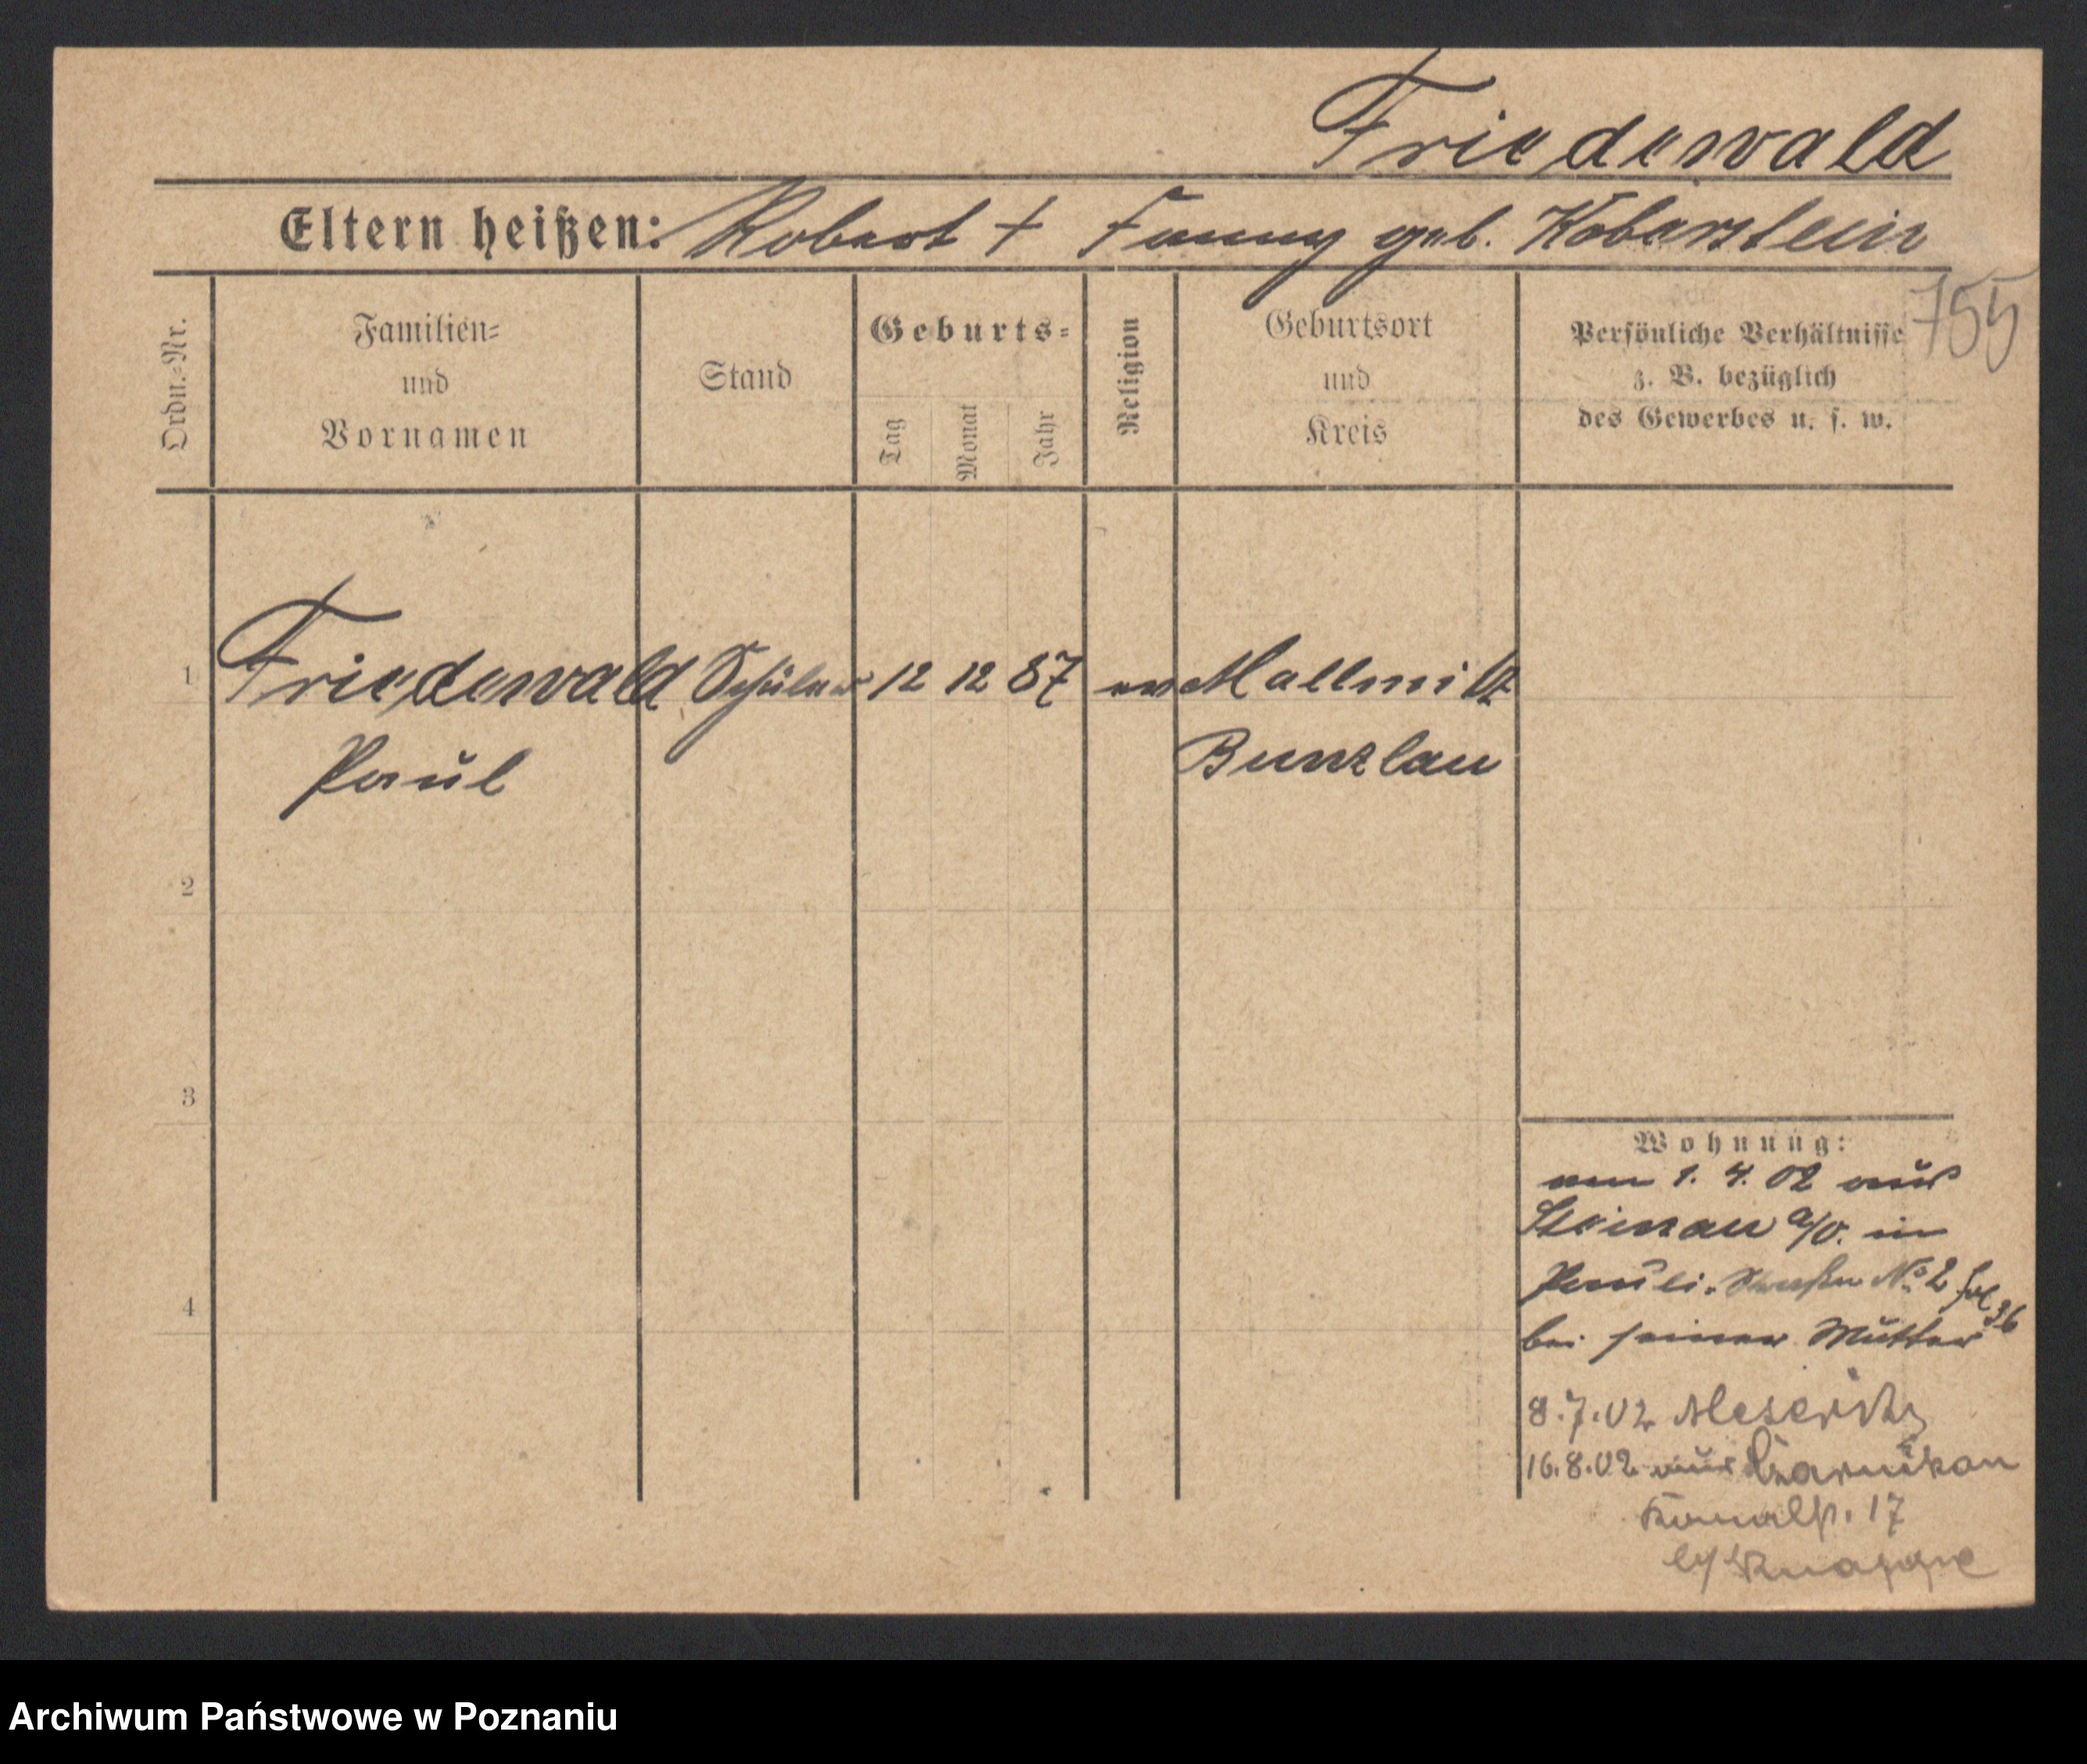 Friedewald
Eltern heißen: Robert † Fanny geb. Koberstein
755
Ordn.=Nr.
Familien=
und
Vornamen
Stand
Geburts=
Tag
Monat
Jahr
Religion
Geburtsort
und
Kreis
Persönliche Verhältnisse
z. B. bezüglich
des Gewerbes u. s. w.
1 Friedewald Schüler 12 12 87 ev Mallmitz
Paul Bunzlau
2
3
4
Wohnung:
vom 1. 4. 02 aus
Steinau a/O. in
Pauli. Straße No 2 fol 36
bei seiner Mutter
8.7.02 Meseritz
16.8.02 aus Czarnikau
Kanalst. 17
b/ Knappe
Archiwum Państwowe w Poznaniu